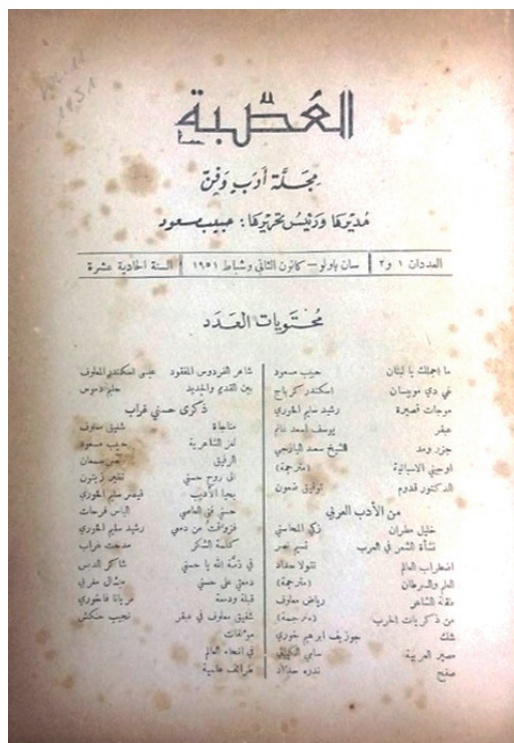 1951
العُصْبة
مجلّة أدب وفنّ
مُديرها ورئيس تحريرها: حبيب مسعود
العددان ١ و٢ | سان باولو — كانون الثاني وشباط ١٩٥١ | السنة الحادية عشرة
مُحْتَويات العَدَد
ما اجملك يا لبنان حبيب مسعود
غي دي موبسان اسكندر كرباج
موجات قصيرة رشيد سليم الخوري
عبقر يوسف اسعد غانم
جزر ومد الشيخ سعد اليازجي
اوجيني الاسبانية (مترجمة)
الدكتور قدوم توفيق ضعون
من الأدب العربي
خليل مطران زكي المحاسني
نشأة الشعر في العرب نسيم نصر
اضطراب العالم نقولا حداد
العلم والسرطان (مترجمة)
الشاعر رياض معلوف
من ذكريات الحرب (مترجمة)
شك جوزيف ابرهيم خوري
مصير العربية سامي الكيالي
صفح ندره حداد
شاعر الفردوس المفقود عيسى اسكندر المعلوف
بين القديم والجديد حليم دموس
ذكرى حسني غراب
مناجاة شفيق معلوف
لغز الشاعرية حبيب مسعود
الرفيق
الى روح حسني نظير زيتون
يحيا الأديب قيصر سليم الخوري
حسني فتى العاصي الياس فرحات
من دمعي رشيد سليم الخوري
كلمة الشكر مدحت غراب
في ذمة الله يا حسني شاكر الدبس
دمعتي على حسني ميشال مغربي
قبلة ودمعة مريانا فاخوري
شفيق معلوف في عبقر نجيب حنكش
مؤلفات
في انحاء العالم
طرائف عالمية